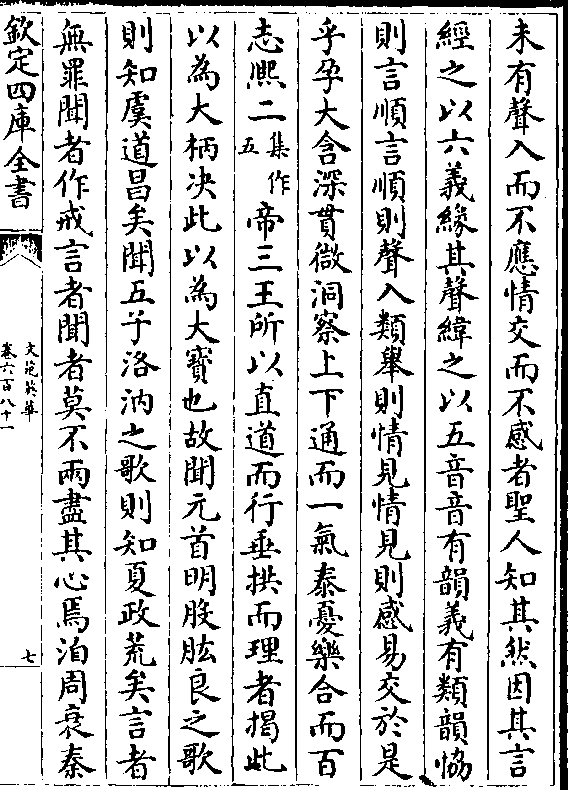 未有聲入而不應情交而不感者聖人知其然因其言
經之以六義緣其聲緯之以五音音有韻義有類韻恊
則言順言順則聲入類舉則情見情見則感易交於是
乎孕大含深貫微洞察上下通而一氣泰憂樂合而百
志熈二集作五帝三王所以直道而行垂拱而理者揭此
以為大柄决此以為大寶也故聞元首明股肱良之歌
則知虞道昌矣聞五子洛汭之歌則知夏政荒矣言者
無罪聞者作戒言者聞者莫不兩盡其心焉洎周衰秦
欽定四庫全書
文苑英華
卷六百八十一
七